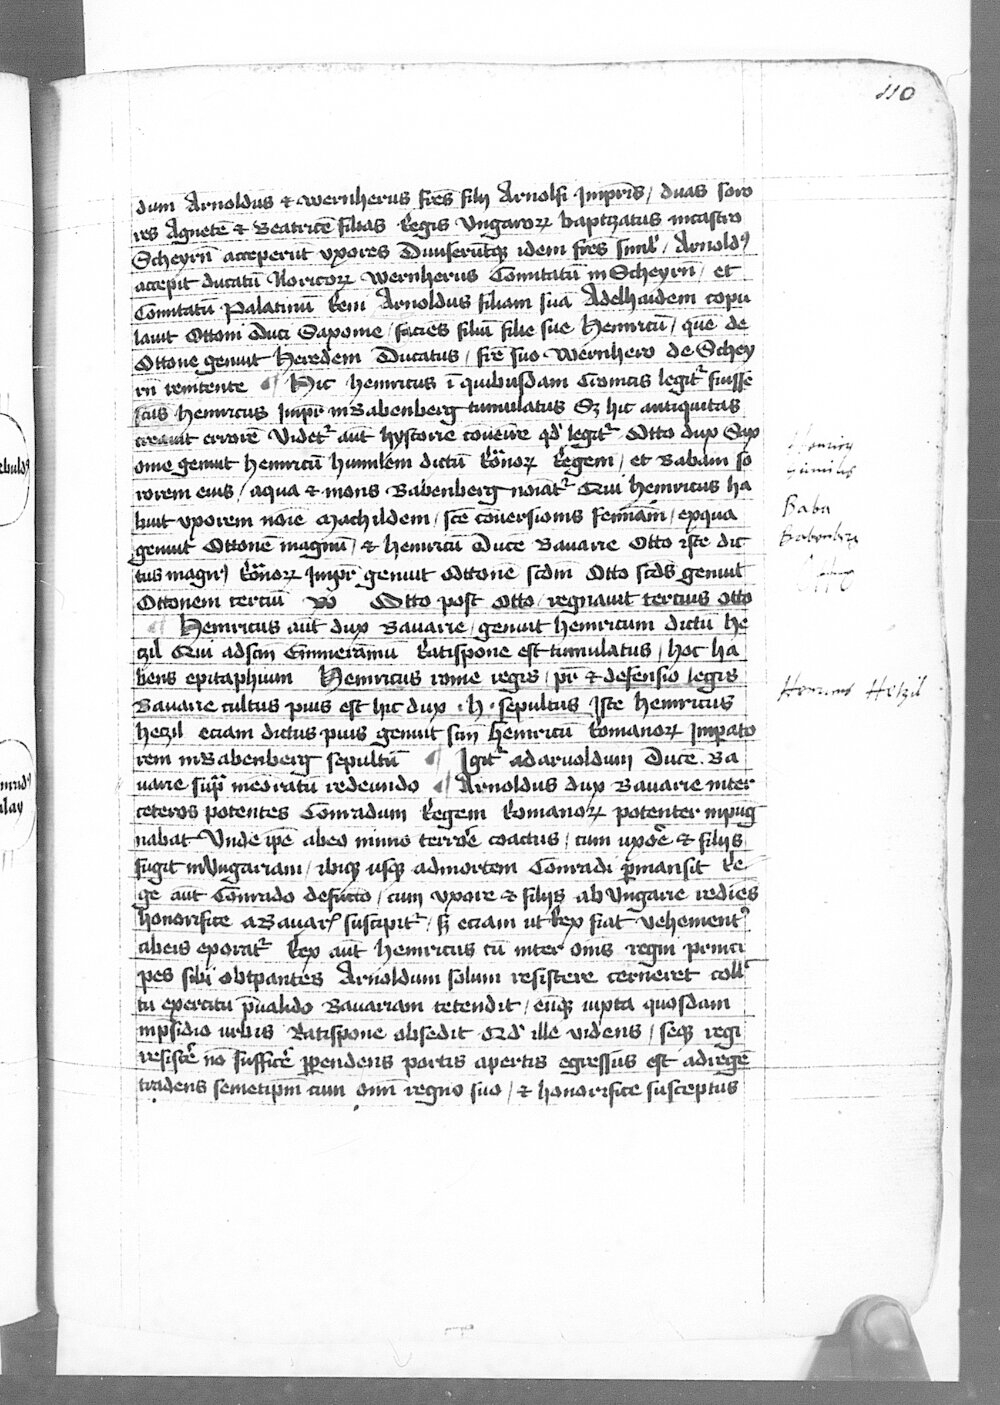 110
dum Arnoldus & Wernherus frēs filij Arnolfi Impr̄is / duas soro
res Agnetē & Beatricē filias Regis Ungaroꝝ baptizatus in castro
Scheyrn̄ acceperūt vxores Diuiserūtqꝫ idem frēs simlʳ / Arnoldꝰ
accepit ducatū Noricoꝝ Wernherus Comitatū in Scheyrn̄ / et
Comitatū Palatinū Rem̄ Arnoldus filiam suā Adelhaidem copu
lauit Ottoni Duci Saxonie / faciēs filiū filie sue Heinricū / quē de
Ottone genuit Heredem Ducatus / frē suo Wernhero de Schey
rn̄ remitente ¶ Hic heinricus ī quibusdam Cronicis legitʳ fuisse
sc̄us Heinricus Impr̄ in Babenberg tumulatus Sꝫ hic antiquitas
creauit errorē Videtʳ aūt hystorie cōuenire qd̄ legitʳ Otto dux Sax
onie genuit Heinricū humilem dictū Rōnoꝝ Regem / et Babam so
rorem eius / a qua & mons Babenberg noīatʳ Qui Heinricus ha
buit vxorem noīe Machildem / sc̄e cōuersionis femīam / ex qua
genuit Ottonē magnū / & heinricū Ducē Bauarie Otto iste dic
tus magnꝰ Rōnoꝝ Impr̄ genuit Ottonē sc̄dm Otto sc̄ds genuit
Ottonem terciū Otto post Otto / regnauit tertius Otto
¶ Heinricus aūt dux Bauarie / genuit heinricum dictū he
czil Qui ad sc̄m Emmeramū Ratispone est tumulatus / hoc ha
bens epitaphium Heinricus rome regis / pr̄ & defensio legis
Bauarie cultus pius est hic dux · H · sepultus Iste heinricus
heczil eciam dictus pius genuit sc̄m Heinricū Romanoꝝ Imꝑato
rem in Babenberg sepultū ¶ Igitʳ ad arnoldum Ducē Ba
uarie supͣ meōratū redeundo ¶ Arnoldus dux Bauarie inter
ceteros potentes Conradum Regem Romanoꝝ potenter inpug
nabat Unde ip̄e ab eo nimio terrōre coactus / cum uxōre & filijs
fugit in Vngariam / ibiqꝫ usqꝫ ad mortem Conradi ꝑmansit Re
ge aūt Conrado defūcto / cum vxore & filijs ab Ungarie rediēs
honorifice a Bauarꝭ suscipitʳ / sꝫ eciam ut Rex fiat vehementʳ
ab eis exoratʳ Rex aūt Heinricus cū inter om̄is regni princi
pes sibi obtꝑantes Arnoldum solum resistere cerneret coll̄
tu exercitu p̄ualido Bauariam tetendit / eūqꝫ iuxta quosdam
in p̄sidio urbis Ratispone obsedit Qd̄ ille videns / seqꝫ regi
resistēʳ nō sufficēʳ ꝑpendens portis apertis egressus est ad regē
tradens semetip̄m cum om̄i regno suo / & honorifice susceptus
Baba
Babenberg
Otto
Henricus Hetzil